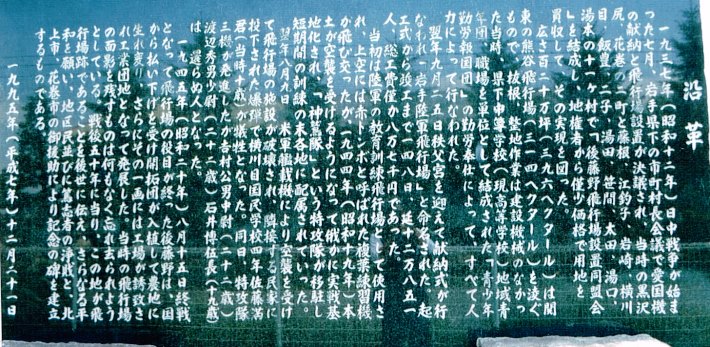 沿革
一九三七年(昭和十二年)日中戦争が始ま
った七月、岩手県下の市町村長会議で愛国機
の献納と飛行場設置が決議され、当時の黒沢
尻、花巻の二町と藤根、江釣子、岩崎、横川
目、飯豊、二子、湯田、笹間、太田、湯口、
湯本の十一ヶ村で「後藤野飛行場設置同盟会
」を結成し、地権者から僅少価格で用地を
買収して、その実現を図った。
広さ百二十万坪(三九六ヘクタール)は関
東の熊谷飛行場(三一四ヘクタール)を凌ぐ
もので、抜根、整地作業は建設機械のなかっ
た当時、県下中等学校(現高等学校)地域青
年団、職場を単位として結成された「青少年
勤労報国団」の勤労奉仕によって、すべて人
力によって行なわれた。
翌年九月二五日秩父宮を迎えて献納式が行
なわれ「岩手陸軍飛行場」と命名された。起
工式から竣工まで一四八日、延十二万八五一
人、総工費僅か八万七千円であった。
当初は陸軍の教育訓練飛行場として使用さ
れ、上空には赤トンボと呼ばれた複葉練習機
が飛び交ったが、一九四四年(昭和十九年)本
土が空襲を受けるようになって俄かに実戦基
地化され、「神鷲隊」という特攻隊が移駐し
短期間の訓練の末各地に配属されていった。
翌年八月九日、米軍艦載機により空襲を受け
て飛行場の施設が破壊され、隣接する民家に
投下された爆弾で横川目国民学校四年佐藤
(当時十歳)が犠牲となった。同日、特攻隊
三機が発進したが吉村公男中尉(二十二歳)
渡辺秀男少尉(二十二歳)石井博伍長(十九歳)
は還らぬ人となった。
一九四五年(昭和二十年)八月十五日終戦
となって飛行場の役目が終った後藤野は、国
から払い下げを受け開拓団が入植して農地に
生れ変り、さらにその一画には工場が誘致さ
れ工業団地となって発展した。当時の飛行場
の面影を残すものは何もなく忘れ去られよう
としている。戦後五十年に当り、この地が飛
行場跡であることを後世に伝え、さらなる平
和を願い、地区民並びに篤志者の浄戝と、北
上市、花巻市の御援助により記念の碑を建立
するものである。
一九九五年(平成七年)十二月二十一日